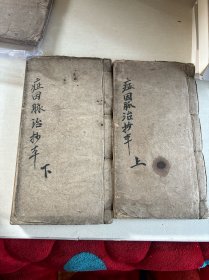 症因脉治抄本
上
症因脉治抄本
下